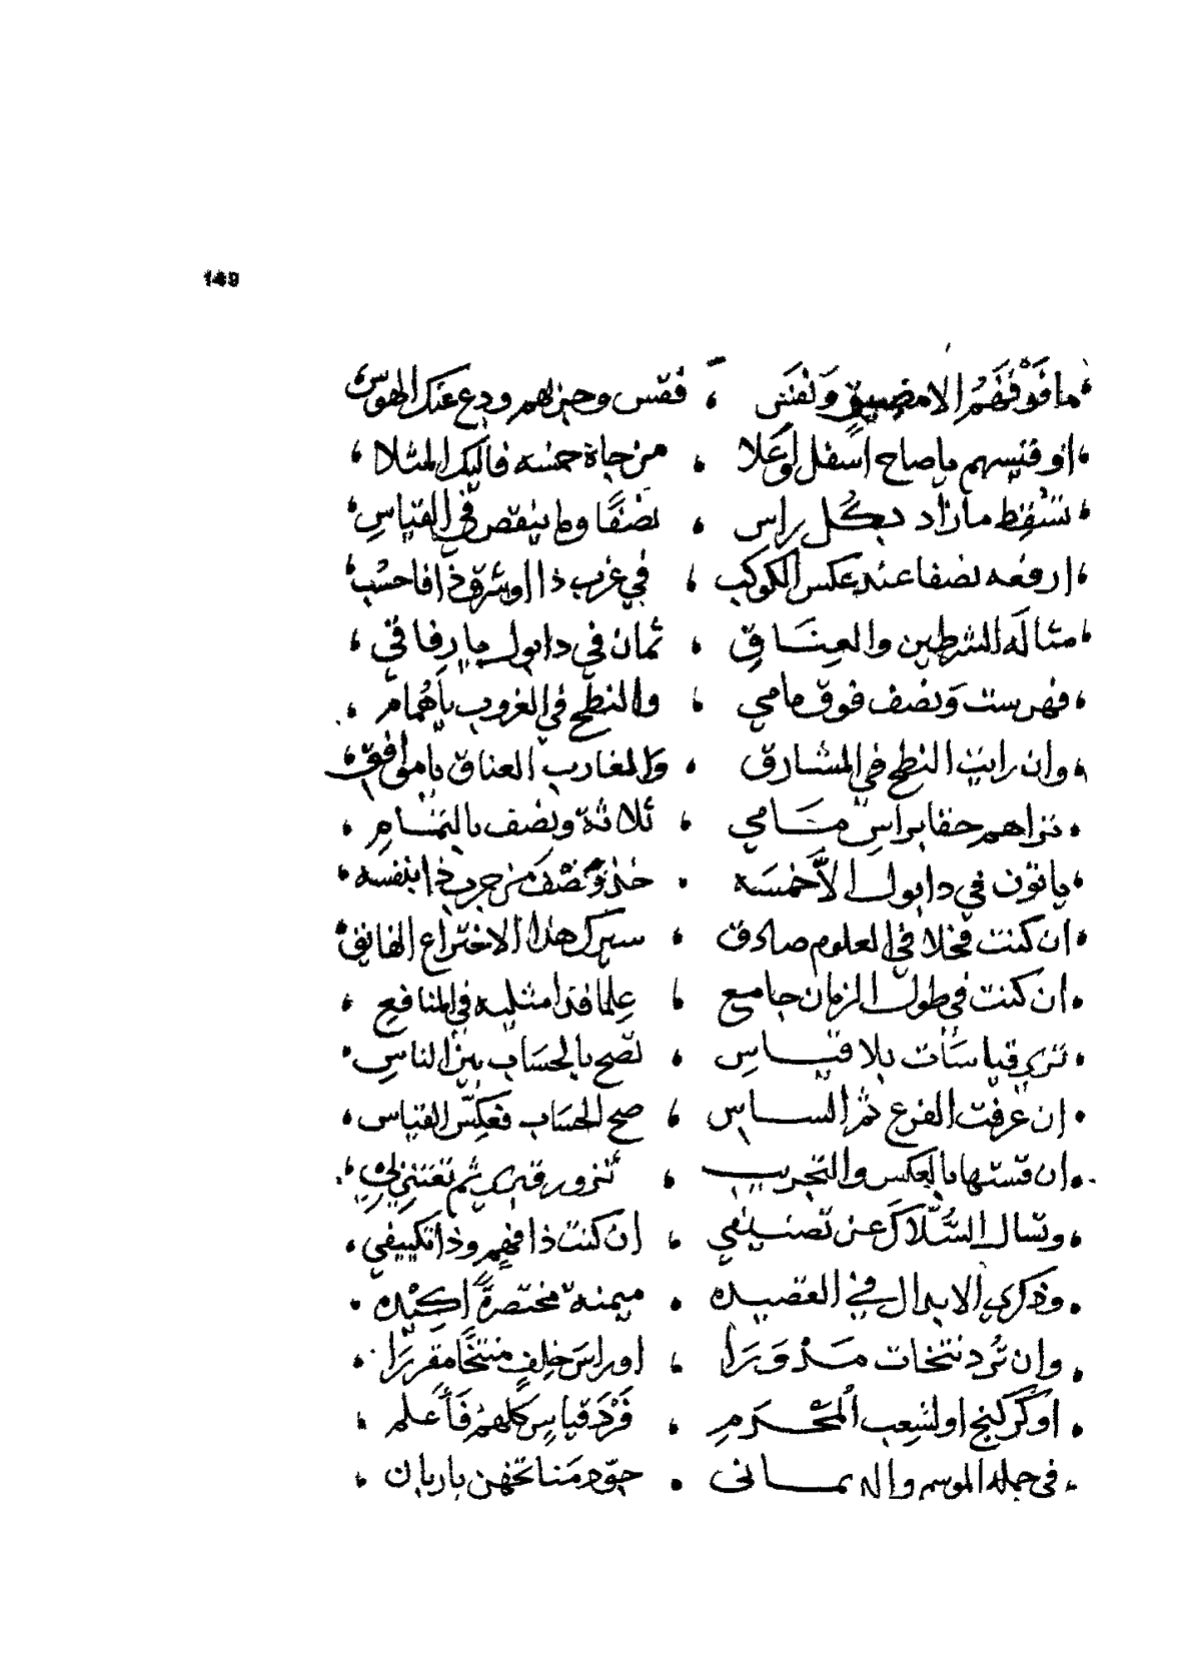 149
ما فوقهم الا مضيق ونفنس ، فقس وحيزهم ودع عنك الهوس
او قيسهم ياصاح اسفل اوعلا ، من جاة خمسه فاليك المثلا
تسقط مازاد بكل راس ، نصفا ولم ينقص في القياس
ارفعه نصفا عند عكس الكوكب ، في غرب ذا او شرق ذا فاحسب
مثاله الشرطين والعناق ، ثمان في دابول يا رفاقي
فهرست ونصف فوق مامي ، والنطح في الغروب ياهمام
وان رايت النطح في المشارق ، والمغارب العناق ياموافق
تراهم حقا براس مامي ، ثلاثة ونصف بالتمام
ياتون في دابول الا خمسه ، خذ ونصف من جرب ذا بنفسه
ان كنت فحلا في العلوم صادق ، سيرك هذا الاختراع الفائق
ان كنت في طول الزمان جامع ، علما فتى امثليه في المنافع
ترى قياسات بلا قياس ، تصح بالحساب بين الناس
ان عرفت الفرع ثم الساس ، صح الحساب فعكس القياس
ان قستها بالعكس والتجريب ، تزور قبري ثم تعتني لي
وتسال السلاك عن تصنيفي ، ان كنت ذا فهم وذا تكييفي
وذكري الابدال في القصيده ، ميمنة مختصرة اكيده
وان ترد نتخات مدوّرا ، اوراس خلف منتخا مقررا
او كركنج او لشعب المحرم ، فرد قياس كلهم فاعلم
في جمله الموسم والديماني ، جوّد مناتخهن ياربان